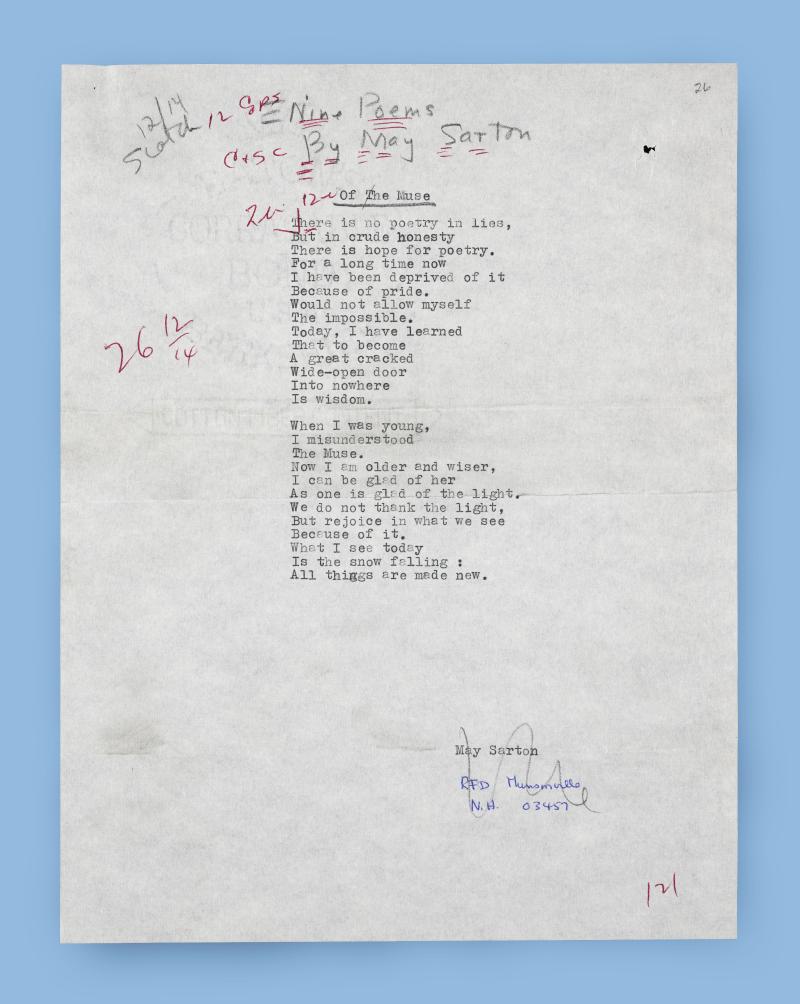 26
12/14
Scotch
12 Grs
Nine Poems
C+sc
By May Sarton
12
Of The Muse
There is no poetry in lies,
But in crude honesty
There is hope for poetry.
For a long time now
I have been deprived of it
Because of pride.
Would not allow myself
The impossible.
Today, I have learned
That to become
A great cracked
Wide-open door
Into nowhere
Is wisdom.
26 12/14
When I was young,
I misunderstood
The Muse.
Now I am older and wiser,
I can be glad of her
As one is glad of the light.
We do not thank the light,
But rejoice in what we see
Because of it.
What I see today
Is the snow falling :
All things are made new.
May Sarton
RFD Munsonville
N.H. 03457
121